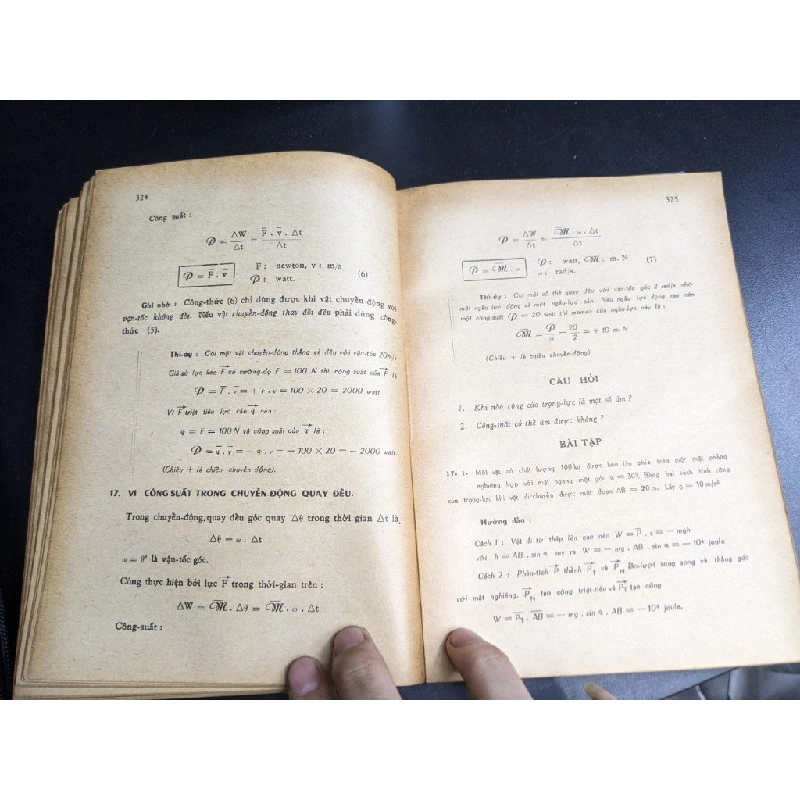 324
Công suất :
𝒫 = ΔW/Δt = F⃗ . v⃗ . Δt/Δt
𝒫 = F⃗ . v⃗ F : newton, v : m/s
𝒫 : watt. (6)
Ghi nhớ : Công-thức (6) chỉ dùng được khi vật chuyển-động với
vận-tốc không đổi. Nếu vật chuyển-động thay đổi đều phải dùng công-
thức (5).
Thí-dụ : Coi một vật chuyển-động thẳng và đều với vận-tốc 20m/s
F⃗ có cường-độ F = 100 N thì công suất của F⃗ là
𝒫 = F⃗ . v⃗ = + F . v = 100 × 20 = 2000 watt
Vì F⃗ triệt tiêu lực cản q⃗ nên :
q = F = 100 N và công suất của q⃗ là :
𝒫 = q⃗ . v⃗ = – q . v = – 100 × 20 = – 2000 watt
(Chiều + là chiều chuyển động).
17. VI CÔNG SUẤT TRONG CHUYỂN-ĐỘNG QUAY ĐỀU.
Trong chuyển-động quay đều góc quay Δθ trong thời gian Δt là
Δθ = ω . Δt
ω = θ' là vận-tốc góc.
Công thực hiện bởi lực F⃗ trong thời-gian trên :
ΔW = ℳ . Δθ = ℳ . ω . Δt
Công-suất :
325
𝒫 = ΔW/Δt = ℳ . ω . Δt/Δt
𝒫 = ℳ . ω 𝒫 : watt, ℳ : m. N (7)
ω : rad/s.
Thí-dụ : Coi một cố thể quay đều với vận-tốc góc 2 rad/s nhờ
một ngẫu-lực động và một ngẫu-lực cản. Nếu ngẫu lực động tạo nên
một công-suất 𝒫 = 20 watt thì momen của ngẫu-lực này là :
ℳ = 𝒫/ω = 20/2 = + 10 m. N
(Chiều + là chiều chuyển-động)
CÂU HỎI
1. Khi nào công của trọng-lực là một số âm ?
2. Công-suất có thể âm được không ?
BÀI TẬP
Một vật có khối lượng 100kg được kéo lên phía trên một mặt phẳng
nghiêng hợp với mặt ngang một góc α = 30°. Bằng hai cách tính công
của trọng-lực khi vật di-chuyển được một đoạn AB = 20 m. Lấy g = 10 m/s²
Hướng dẫn :
Cách 1 : Vật đi từ thấp lên cao nên W = P⃗ . = – mgh
với h = AB . sin α suy ra W = – mg . AB . sin α = – 10⁴ joule
Cách 2 : Phân-tích P⃗ thành P⃗T và P⃗N lần-lượt song song và thẳng góc
với mặt nghiêng. P⃗N tạo công triệt-tiêu và P⃗T tạo công
W = P⃗T . AB⃗ = – mg . sin α . AB = – 10⁴ joule.